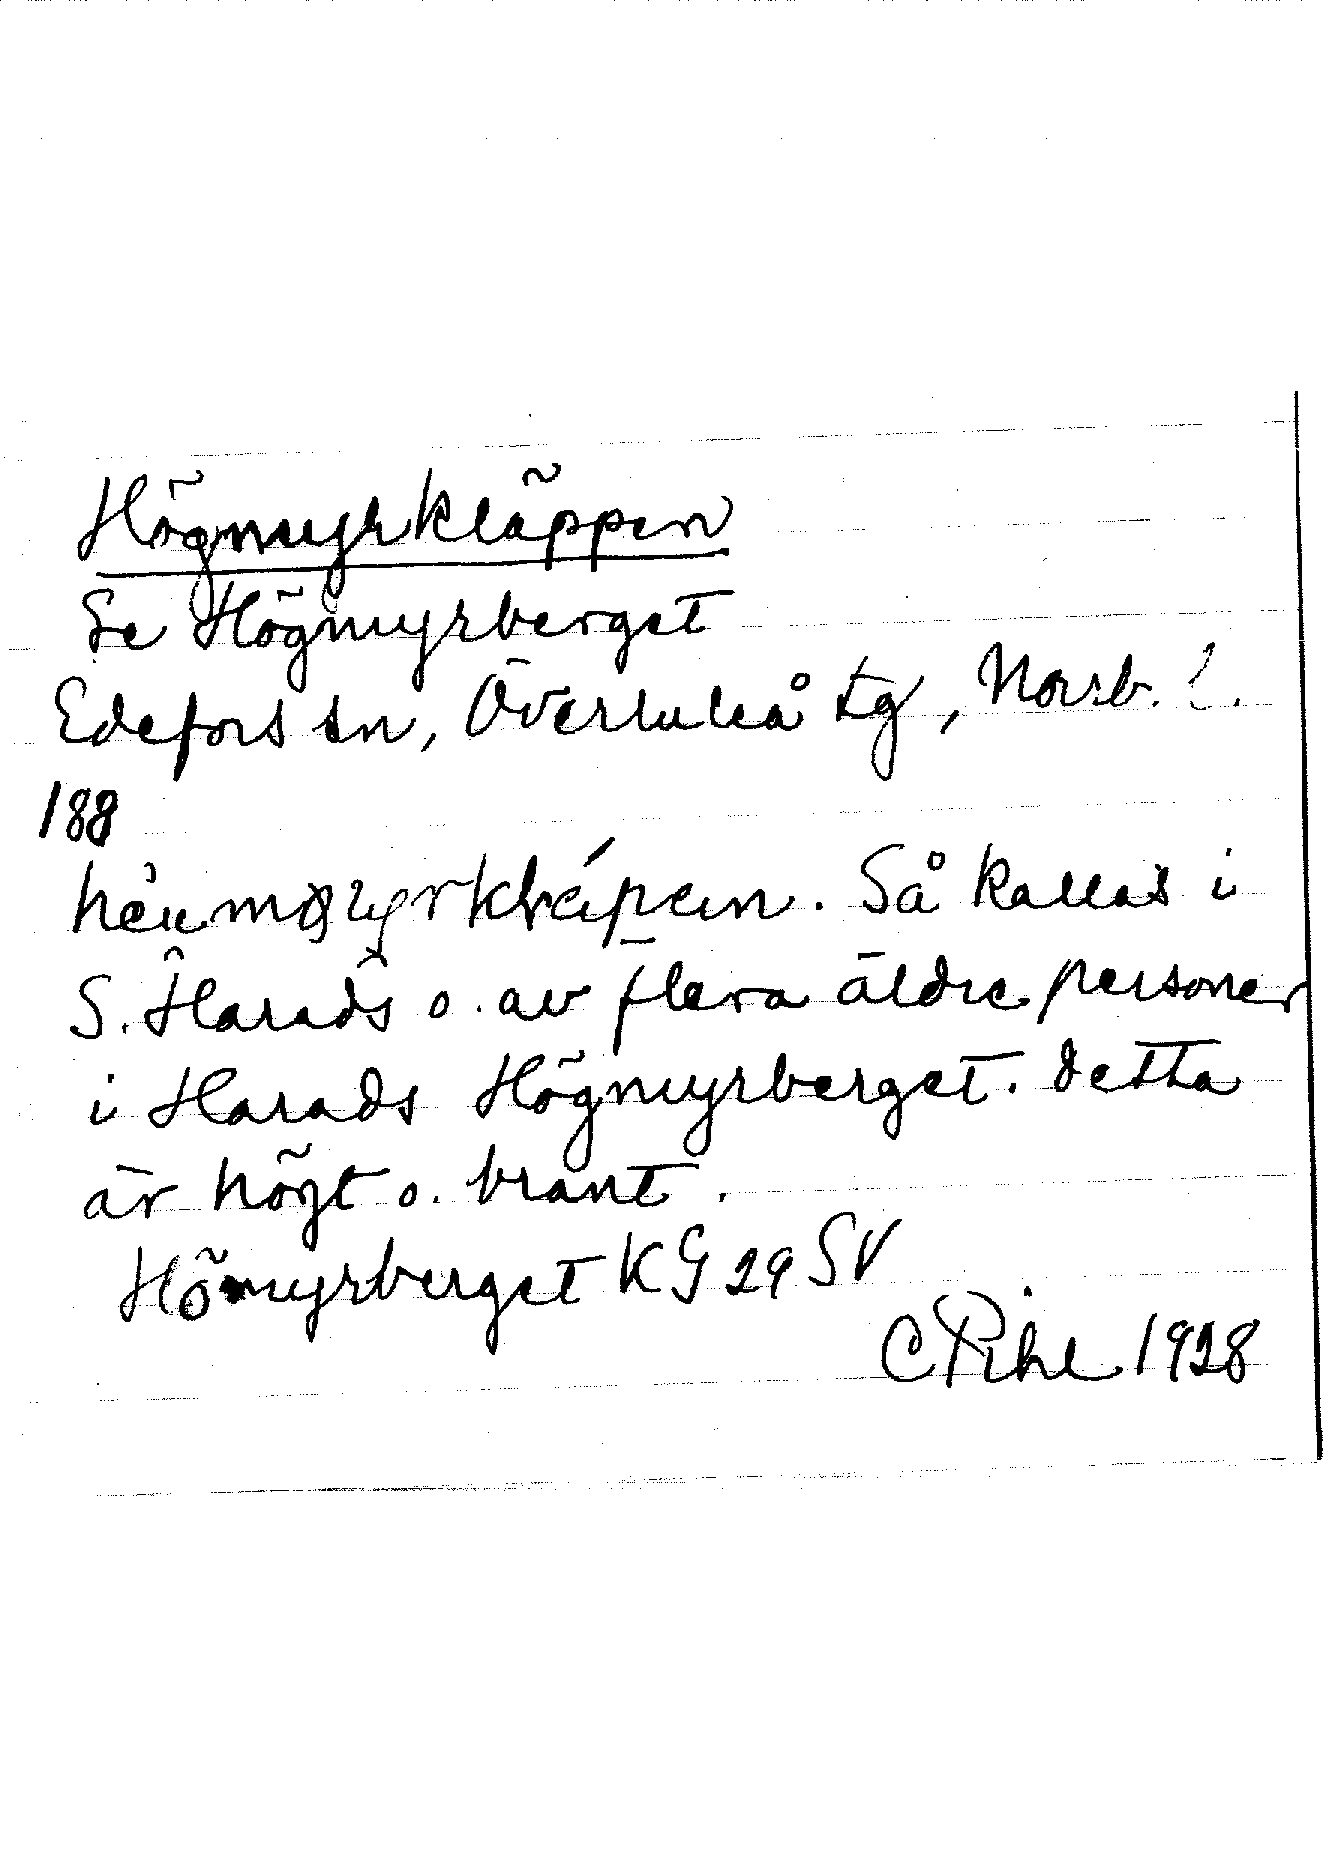 Högmyrkläppen
Se Högmyrberget
Edefors sn, Överluleå tg, Norrb. l.
188
. Så kallas i
S. Harads o. av flera äldre personer
i Harads Högmyrberget. Detta
är högt o. brant.
Hömyrberget KG 29 SV
C Pihl 1928